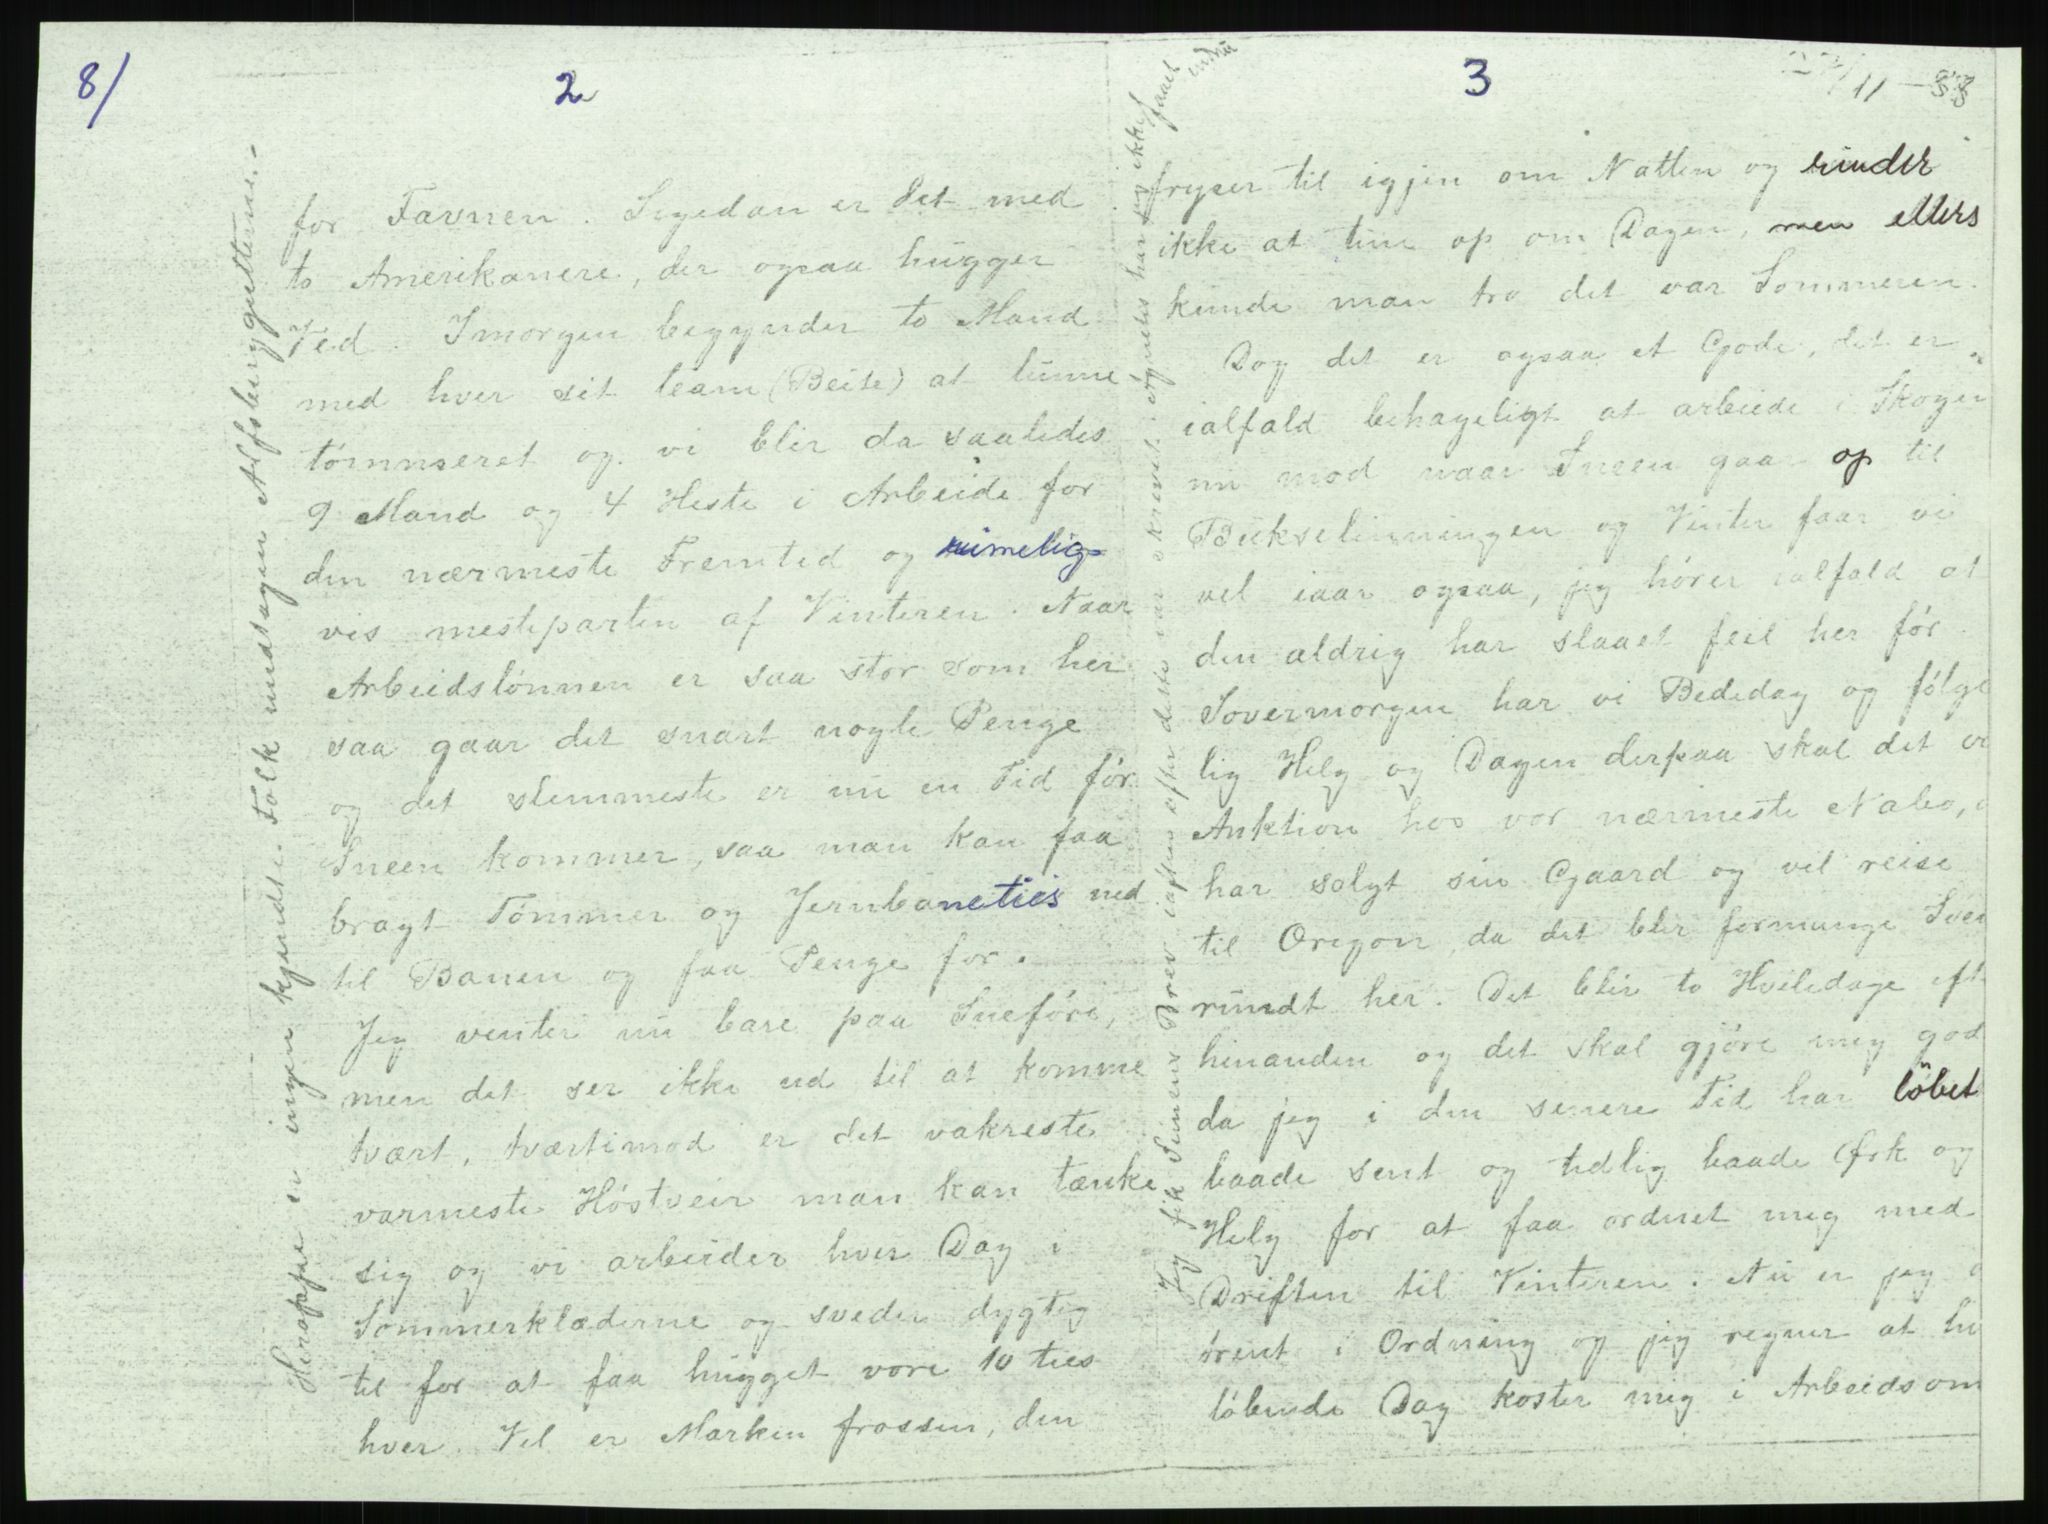 8/
2
for Favnen. Ligedan er det med
to Amerikanere, der ogsaa hugger
Ved. Imorgen begynder to Mand
med hver sit team (Beite) at lunne
tømmeret og vi blir da saaledes
9 Mand og 4 Heste i Arbeide for
den nærmeste Fremtid og rimelig-
vis mesteparten af Vinteren. Naar
Arbeidslønnen er saa stor som her
saa gaar det snart nogle Penge
og det slemmeste er nu en Tid før
Sneen kommer, saa man kan faa
bragt Tømmer og Jernbaneties ned
til Banen og faa Penge for.
Jeg venter nu bare paa Sneføre,
men det ser ikke ud til at komme
tvært, tværtimod er det vakreste
varmeste Høstveir man kan tænke
sig og vi arbeider hver Dag i
Sommerklæderne og sveder dygtig
til for at faa hugget vore 10 ties
hver. Vel er Marken frossen, den
Heroppe er ingen kjendte Folk undtagen Alfsbuggutterne.
3
11 - 88
fryser til igjen om Natten og rinder
ikke at tine op om Dagen, men ellers
kunde man tro det var Sommeren.
Dog det er ogsaa et Gode, det er
ialfald behageligt at arbeide i Skogen
nu mod naar Sneen gaar op til
Bukselinningen og Vinter faar vi
vel iaar ogsaa, jeg hører ialfald at
den aldrig har slaaet feil her før.
Iovermorgen har vi Bededag og følge
lig Helg og Dagen derpaa skal det
Auktion hos vor nærmeste Nabo,
har solgt sin Gaard og vil reise
til Oregon, da det blir formange Sven
rundt her. Det blir to Hviledage eft
hinanden og det skal gjøre mig god
da jeg i den senere Tid har løbet
baade sent og tidlig baade Ørk og
Helg for at faa ordnet mig med
Driften til Vinteren. Nu er jeg
ørent i Ordning og jeg regner at hv
løbende Dag koster mig i Arbeidsom
Jeg fik Simens Brev iaften efter dette var skrevet. Agnetes har jeg ikke
faaet
endnu